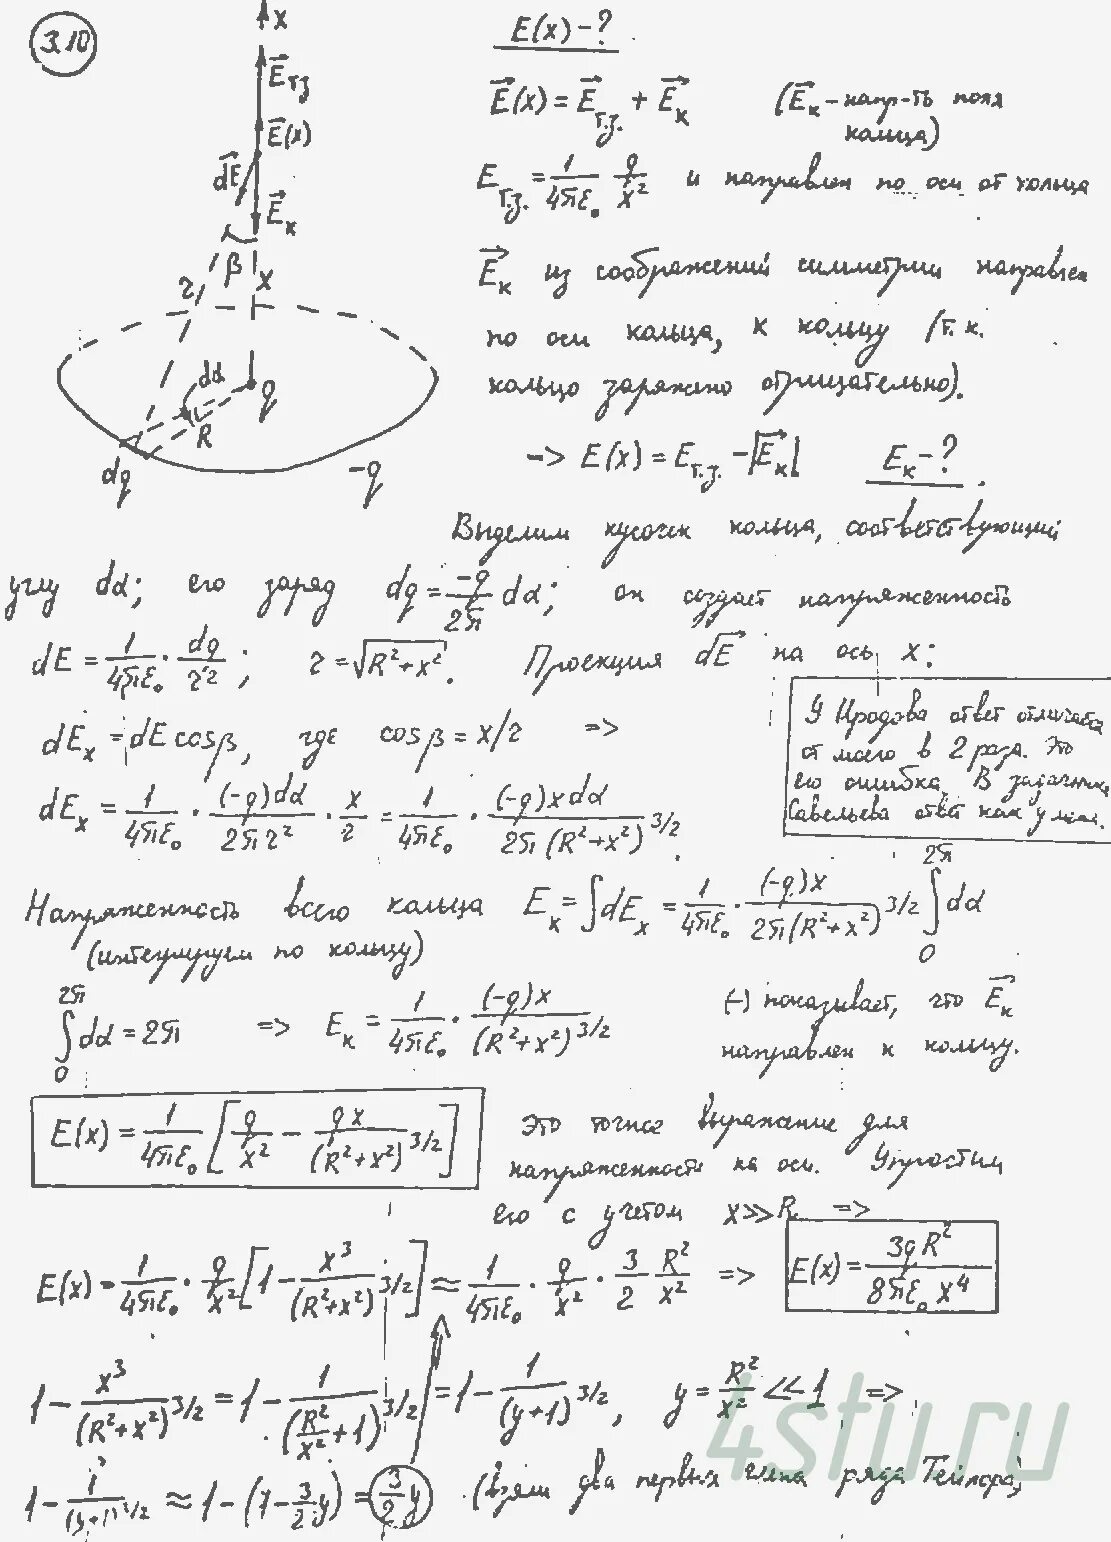 3.10
x
E⃗т.з.
E⃗(x)
dE⃗
E⃗к
β
x
r
dα
q
R
dq
-q
E(x) - ?
E⃗(x) = E⃗т.з. + E⃗к (E⃗к - напр-ть поля кольца)
Eт.з. = 1/4πε₀ q/x² и направлен по оси от кольца
E⃗к из соображений симметрии направлен
по оси кольца, к кольцу (т.к.
кольцо заряжено отрицательно).
=> E(x) = Eт.з. - |E⃗к| Eк - ?
Выделим кусочек кольца, соответствующий
углу dα; его заряд dq = -q/2π dα; он создаёт напряженность
dE = 1/4πε₀ · dq/r²; r = √(R²+x²). Проекция dE⃗ на ось x:
dEx = dE cosβ, где cosβ = x/r =>
dEx = 1/4πε₀ · (-q)dα/2πr² · x/r = 1/4πε₀ · (-q)x dα/2π(R²+x²)^3/2.
У Иродова ответ отличается
от моего в 2 раза. Это
его ошибка. В задачнике
Савельева ответ как у меня.
Напряженность всего кольца Eк = ∫dEx = 1/4πε₀ · (-q)x/2π(R²+x²)^3/2 ∫₀^2π dα
(интегрируем по кольцу)
∫₀^2π dα = 2π => Eк = 1/4πε₀ · (-q)x/(R²+x²)^3/2 (-) показывает, что E⃗к
направлен к кольцу.
E(x) = 1/4πε₀ [q/x² - qx/(R²+x²)^3/2]
Это точное выражение для
напряженности на оси. Упростим
его с учетом x>>R =>
E(x) = 1/4πε₀ · q/x² [1 - x³/(R²+x²)^3/2] ≈ 1/4πε₀ · q/x² · 3/2 R²/x² => E(x) = 3qR²/8πε₀x⁴
1 - x³/(R²+x²)^3/2 = 1 - 1/(R²/x²+1)^3/2 = 1 - 1/(y+1)^3/2, y = R²/x² << 1 =>
1 - 1/(y+1)^3/2 ≈ 1 - (1 - 3/2 y) = 3/2 y (взяли два первых члена ряда Тейлора)
4stu.ru